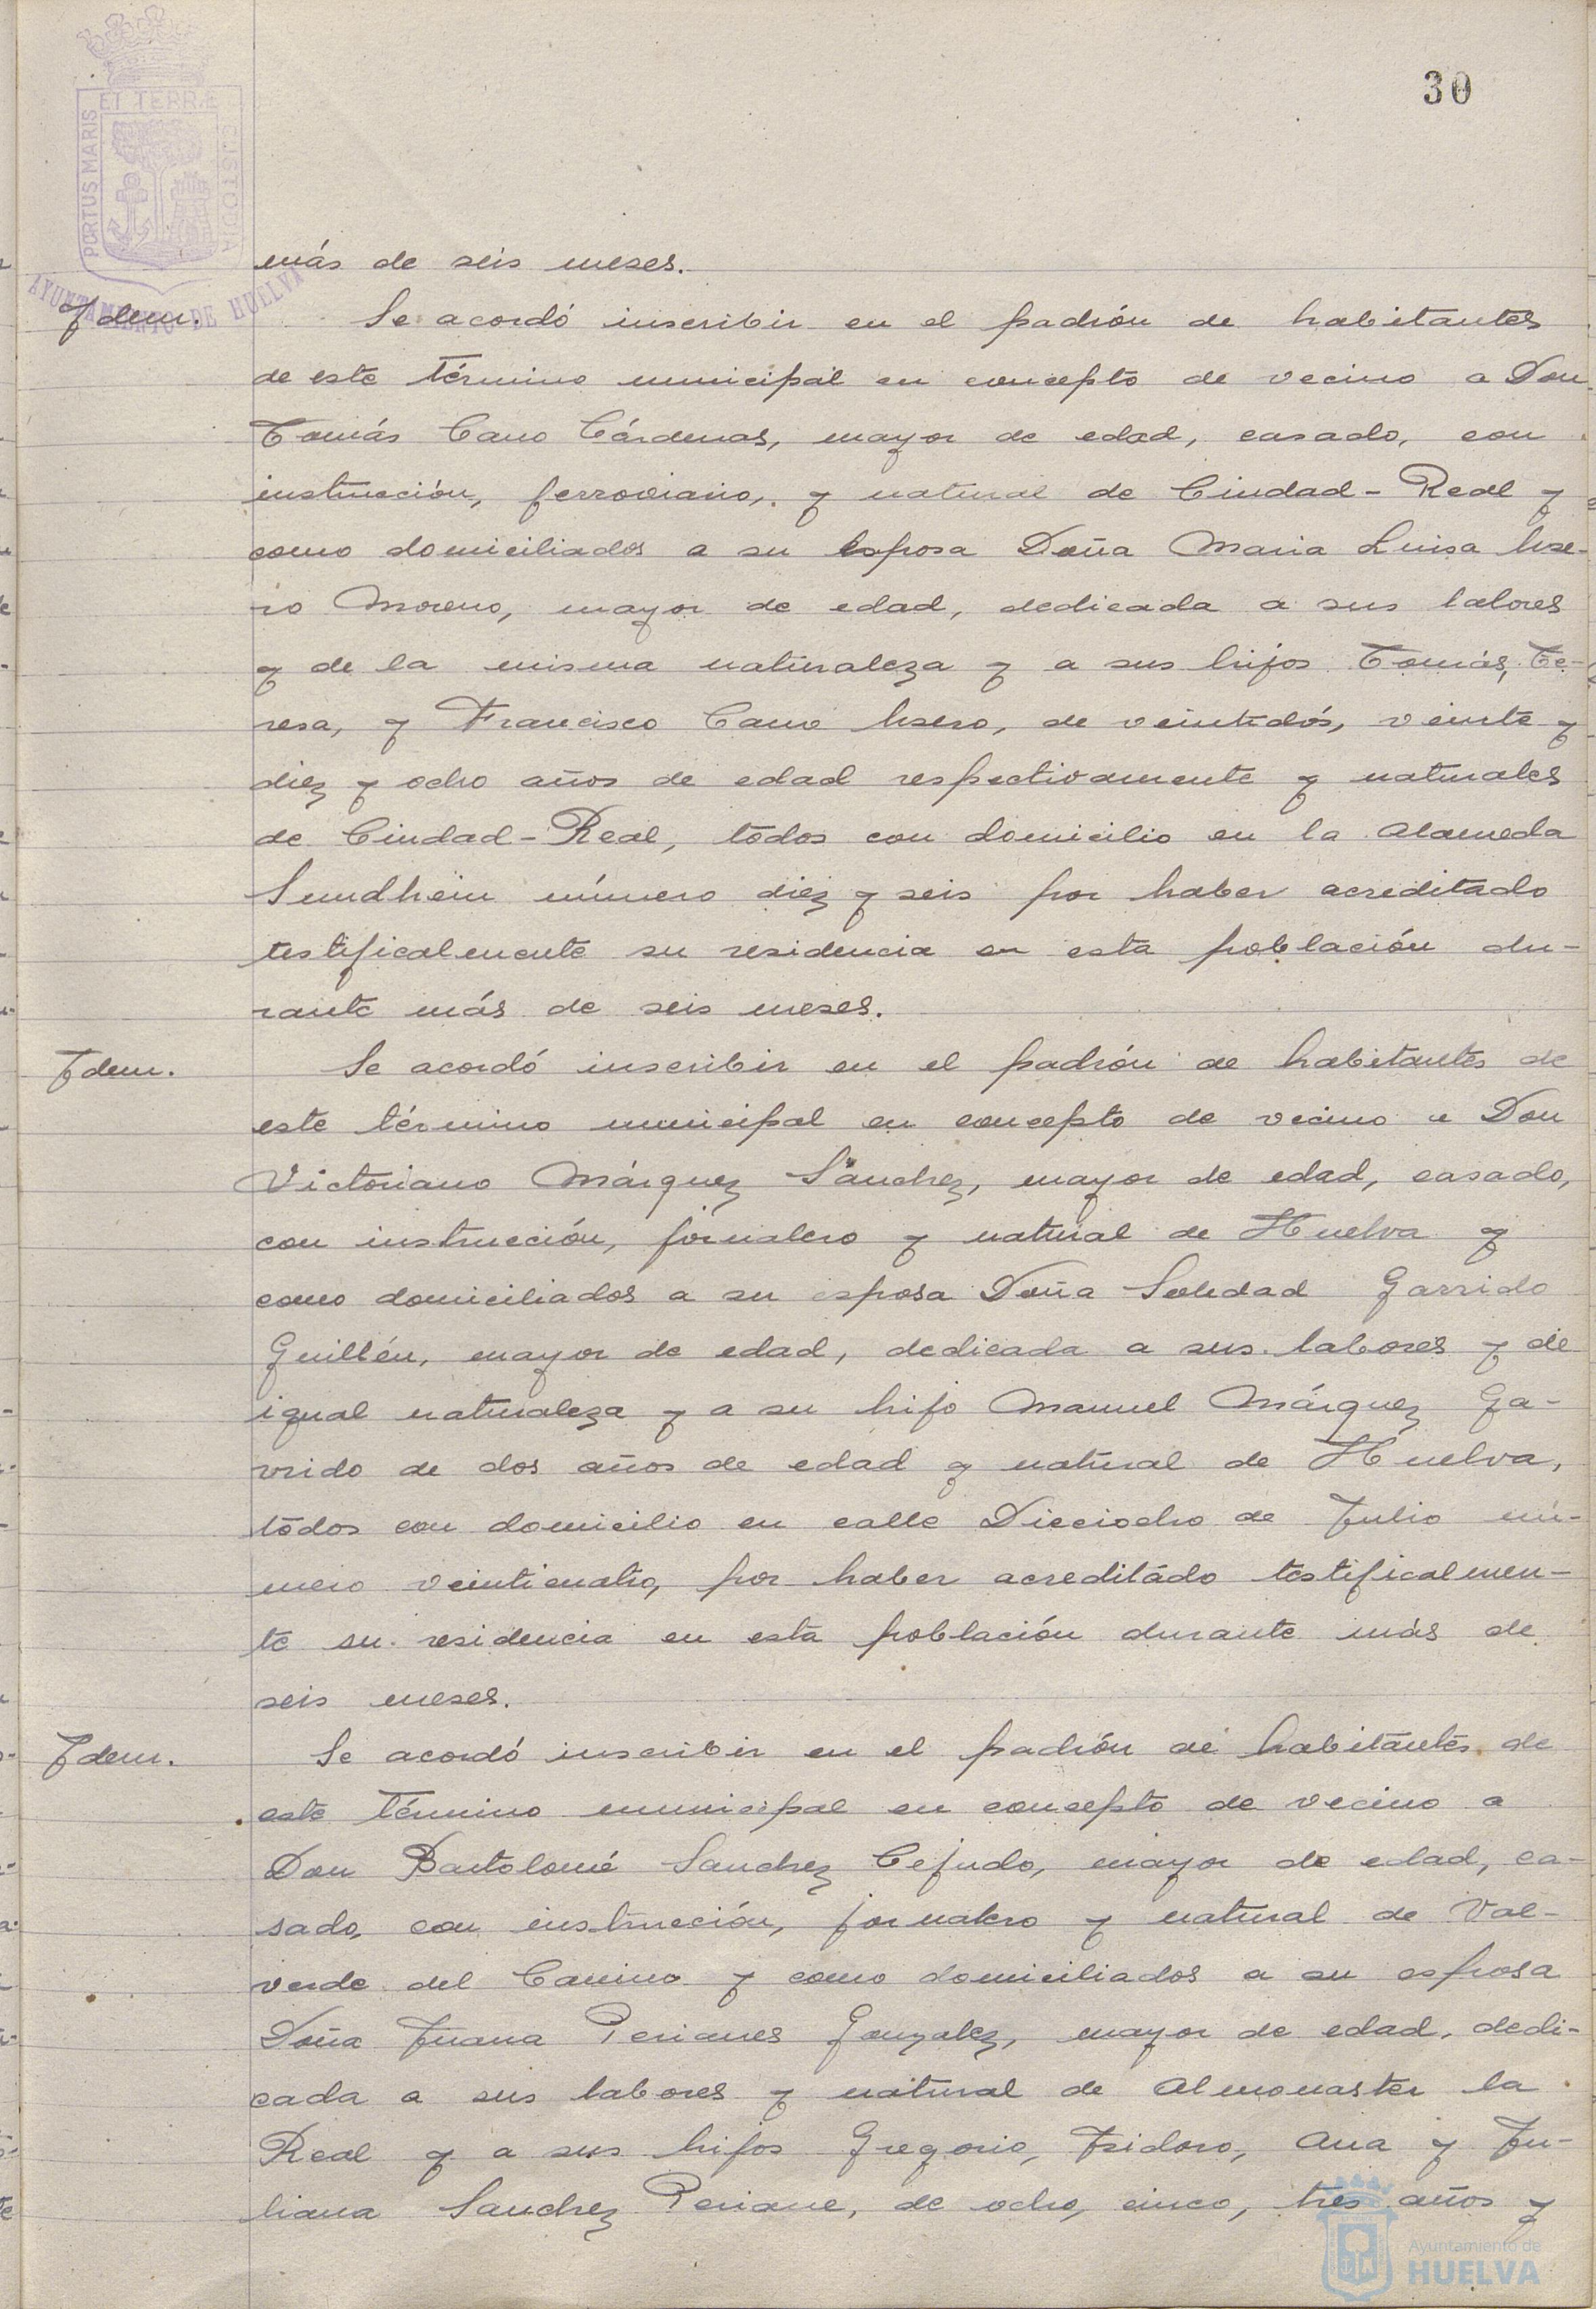 30
ET TERRÆ
PORTUS MARIS
CUSTODIA
AYUNTAMIENTO DE HUELVA
más de seis meses.
Idem. Se acordó inscribir en el padrón de habitantes
de este término municipal en concepto de vecino a Don
Tomás Cano Cárdenas, mayor de edad, casado, con
instrucción, ferroviario, y natural de Ciudad-Real y
como domiciliados a su esposa Doña Maria Luisa
ro Moreno, mayor de edad, dedicada a sus labores
y de la misma naturaleza y a sus hijos Tomás, Te-
resa, y Francisco Cano de veintidós, veinte y
diez y ocho años de edad respectivamente y naturales
de Ciudad-Real, todos con domicilio en la Alameda
Sundhein número diez y seis por haber acreditado
testificalmente su residencia en esta población du-
rante más de seis meses.
Idem. Se acordó inscribir en el padrón de habitantes de
este término municipal en concepto de vecino a Don
Victoriano Márquez Sánchez, mayor de edad, casado,
con instrucción, jornalero y natural de Huelva y
como domiciliados a su esposa Doña Soledad Garrido
Guillén, mayor de edad, dedicada a sus labores y de
igual naturaleza y a su hijo Manuel Márquez Ga-
rrido de dos años de edad y natural de Huelva,
todos con domicilio en calle Dieciocho de Julio nú-
mero veinticuatro, por haber acreditado testificalmen-
te su residencia en esta población durante más de
seis meses.
Idem. Se acordó inscribir en el padrón de habitantes de
este término municipal en concepto de vecino a
Don Bartolomé Sanchez Cejudo, mayor de edad, ca-
sado, con instrucción, jornalero y natural de Val-
verde del Camino y como domiciliados a su esposa
Doña Juana Perianes Gonzalez, mayor de edad, dedi-
cada a sus labores y natural de Almonaster la
Real y a sus hijos Gregorio, Isidoro, Ana y Ju-
liana Sanchez Periane, de ocho, cinco, tres años y
Ayuntamiento de
HUELVA